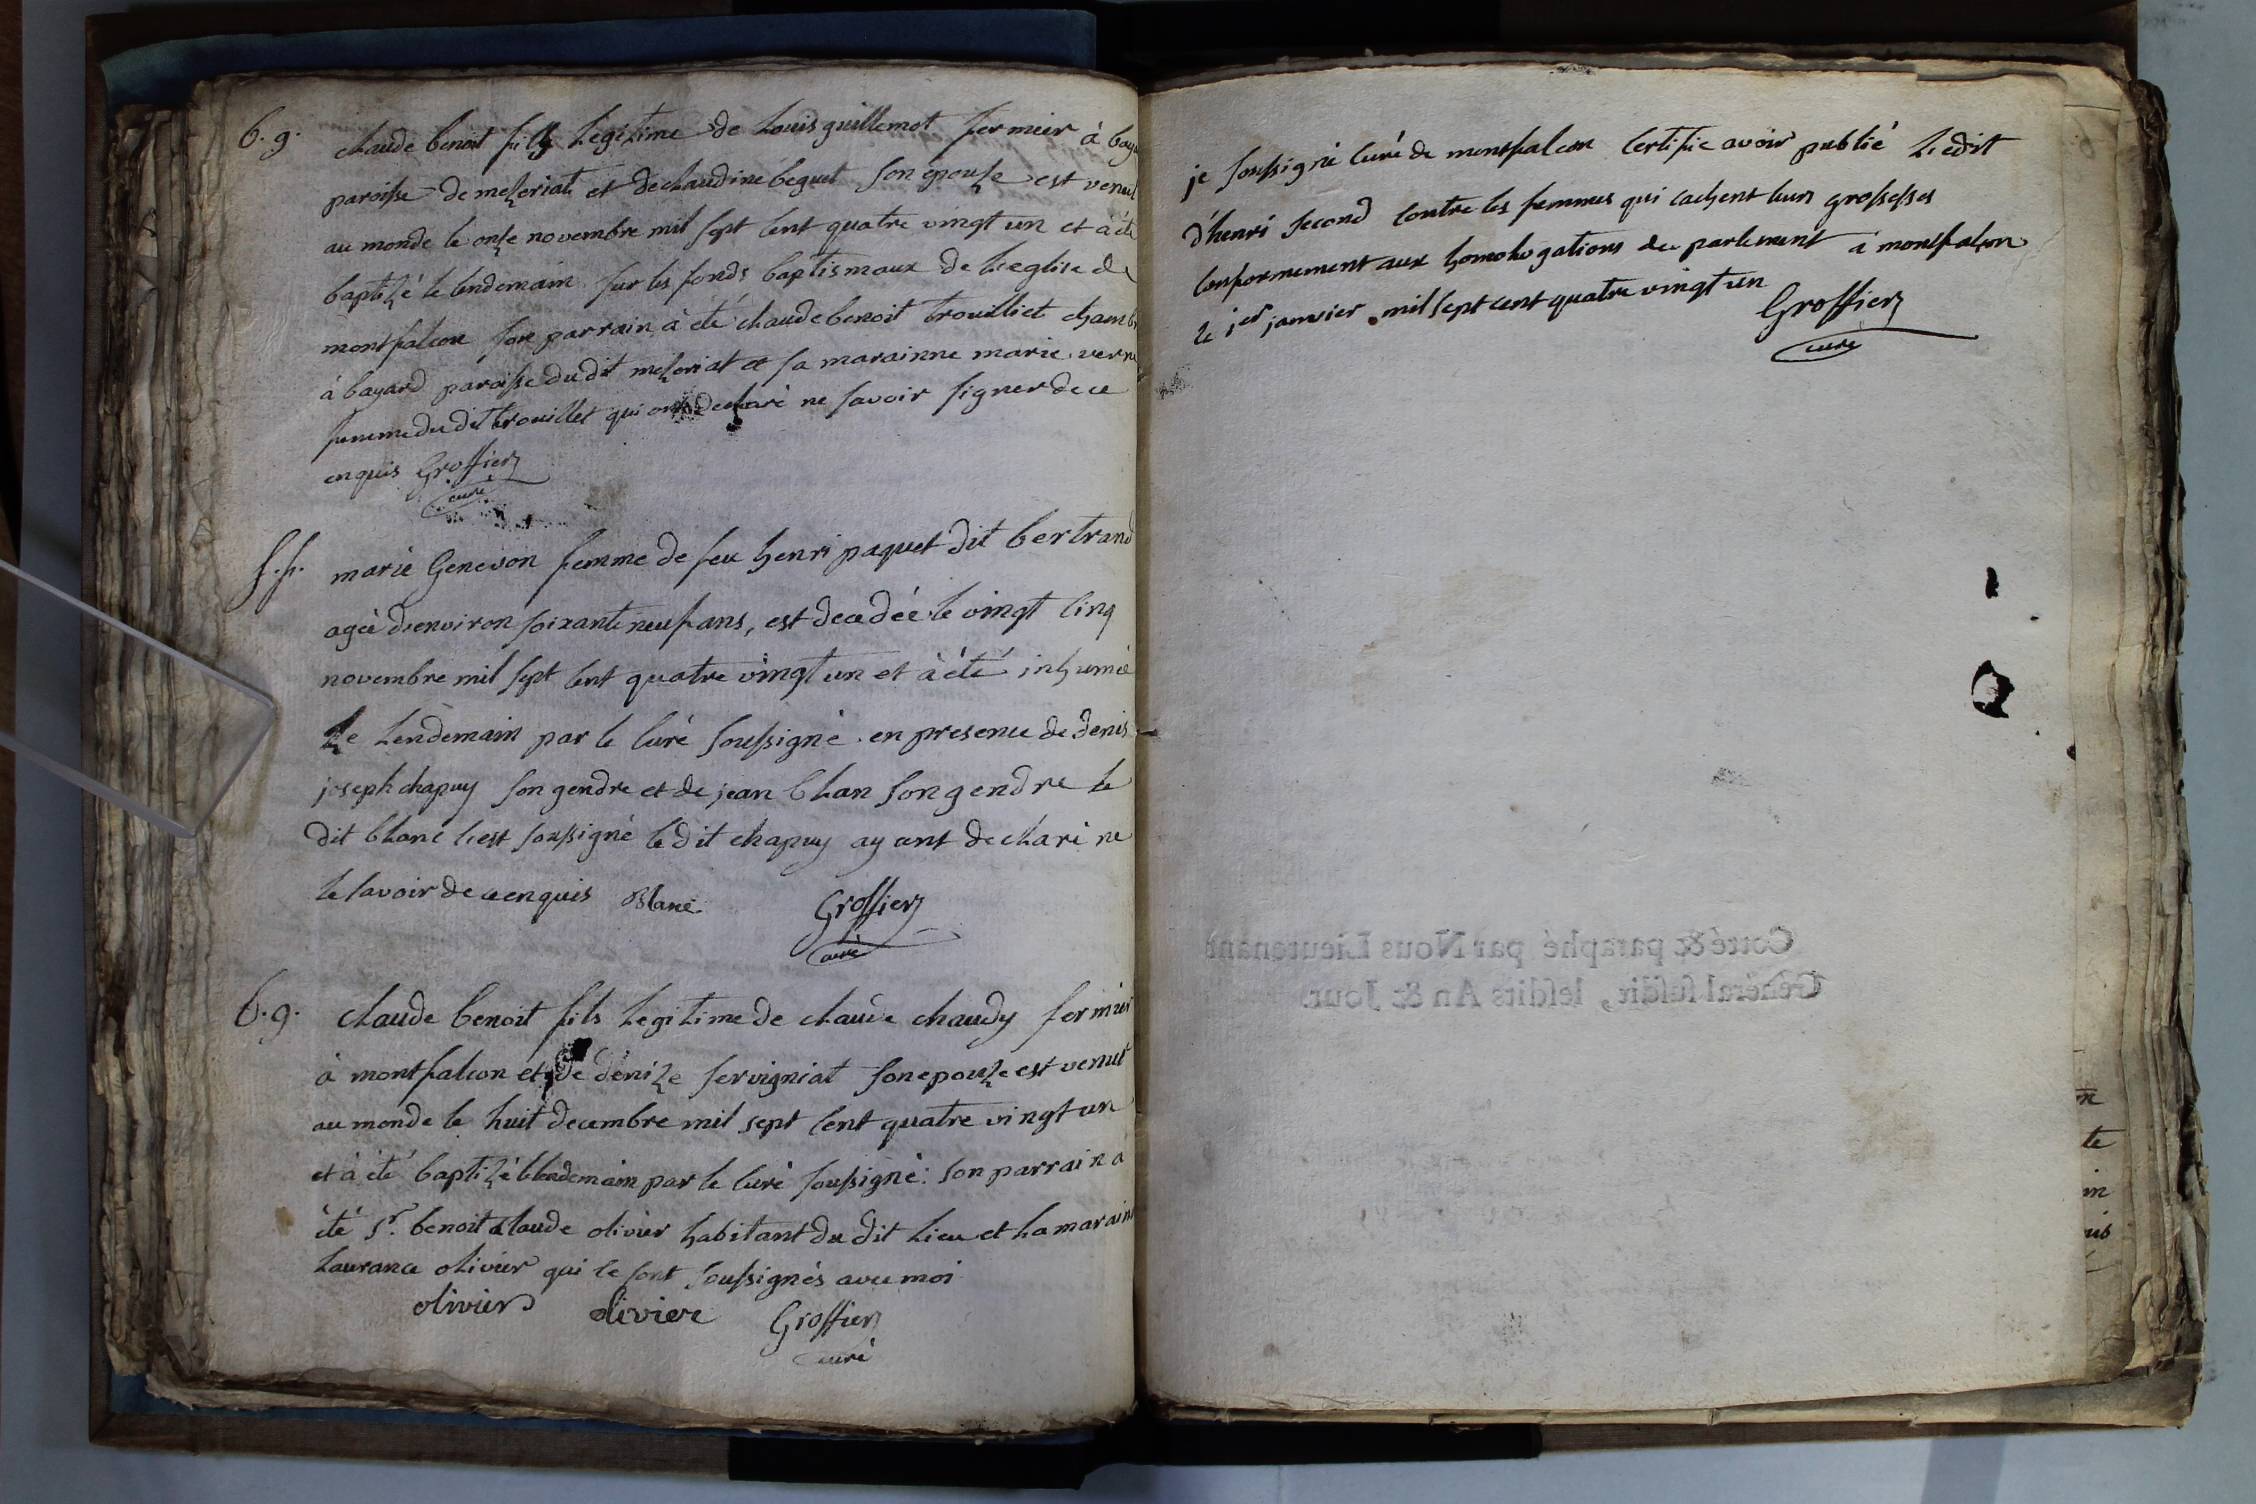 b. g.
claude benoit fils legitime de Louis guillemot fermier à
paroisse de mezeriat et de claudine beguet son epouse est venu
au monde le onze novembre mil sept cent quatre vingt un et à été
baptizé le lendemain sur les fonds baptismaux de l'eglise de
montfalcon son parrain à été claude benoit trouilliet
à bayard paroisse du dit mezeriat et sa marainne marie
femme du dit trouillet qui ont declaré ne savoir signer de ce
enquis Groffier
curé
f. p.
marie Genevon femme de feu henri paquet dit bertrand
agée d'environ soixante neuf ans, est decedée le vingt cinq
novembre mil sept cent quatre vingt un et à été inhumée
le lendemain par le curé soussigné en presence de denis
joseph chapuy son gendre et de jean blan son gendre le
dit blanc s'est soussigné le dit chapuy ayant declaré ne
le savoir de ce enquis Blanc Groffier
curé
b. g.
claude benoit fils legitime de claude chaudy fermier
à montfalcon et de denize servigniat son epouze est venu
au monde le huit decembre mil sept cent quatre vingt un
et à été baptizé le lendemain par le curé soussigné: son parrain a
été Sr. benoit claude olivier habitant du dit lieu et la
Laurance olivier qui se sont soussignés avec moi
olivier olivier Groffier
curé
je soussigné curé de montfalcon certifie avoir publié L'edit
d'henri second contre les femmes qui cachent leurs grossesses
conformement aux homologations du parlement à montfalcon
le jer janvier mil sept cent quatre vingt un
Groffier
curé
Cotté & paraphé par Nous Lieutenant
Général susdit, lesdits An & Jour.